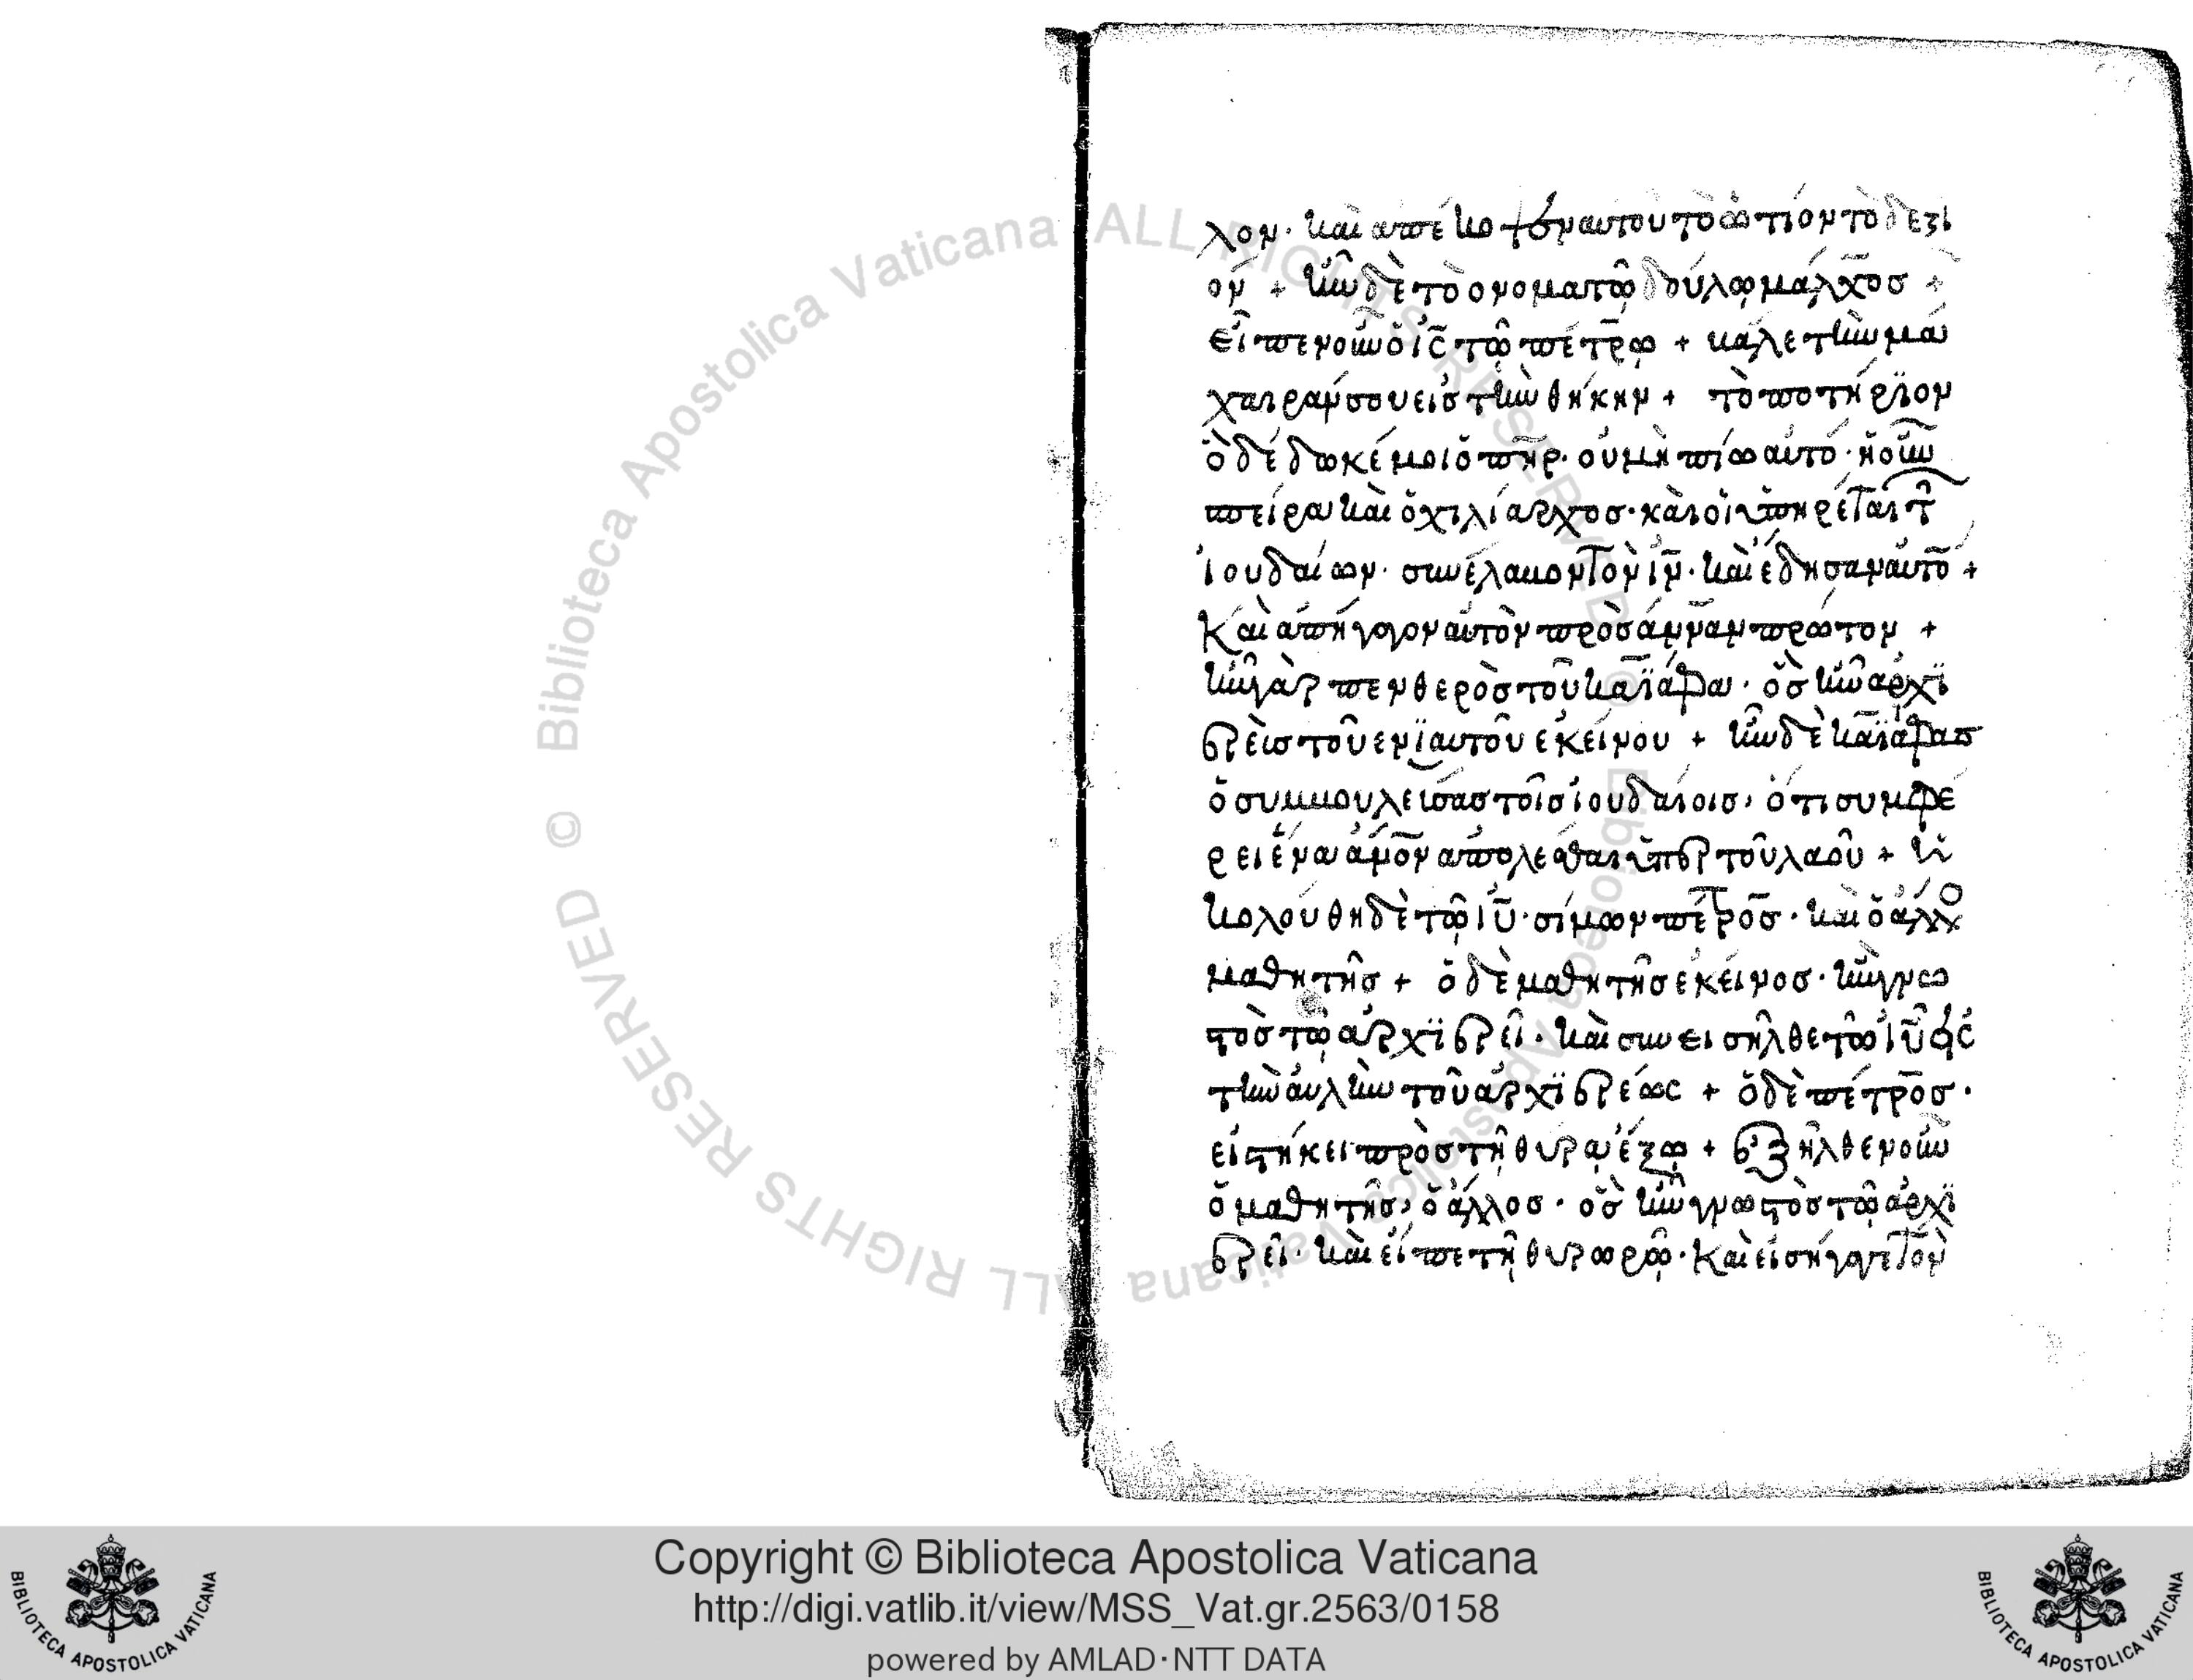 λον· καὶ ἀπέκοψεν αὐτοῦ τὸ ὠτίον τὸ δεξι
όν + ἦν δὲ τὸ ὄνομα τῷ δούλῳ μάλχος +
εἶπεν οὖν ὁ ἰς̅ τῷ πέτρῳ + βάλε τὴν μά
χαιράν σου εἰς τὴν θήκην + τὸ ποτήριον
ὃ δέδωκέ μοι ὁ πηρ̅· οὐ μὴ πίω αὐτό· ἡ οὖν
σπεῖρα καὶ ὁ χιλίαρχος· καὶ οἱ ὑπηρέται τῶν
ἰουδαίων· συνέλαβον τὸν ἰν̅· καὶ ἔδησαν αὐτὸ +
Καὶ ἀπήγαγον αὐτὸν πρὸς ἄνναν πρῶτον +
ἦν γὰρ πενθερὸς τοῦ καϊάφα· ὃς ἦν ἀρχι
ερεὺς τοῦ ἐνιαυτοῦ ἐκείνου + ἦν δὲ καϊάφας
ὁ συμβουλεύσας τοῖς ἰουδαίοις, ὅτι συμφέ
ρει ἕνα ἄνον̅ ἀπολέσθαι ὑπὲρ τοῦ λαοῦ + ἠ
κολούθη δὲ τῷ ἰυ̅· σίμων πέτρος· καὶ ὁ ἄλλο
μαθητὴς + ὁ δὲ μαθητὴς ἐκεῖνος· ἦν γνω
στὸς τῷ ἀρχιερεῖ· καὶ συνεισῆλθε τῷ ἰυ̅ εἰς
τὴν αὐλὴν τοῦ ἀρχιερέως + ὁ δὲ πέτρος·
εἱστήκει πρὸς τῇ θύρᾳ ἔξω + ἐξῆλθεν οὖν
ὁ μαθητὴς, ὁ ἄλλος· ὃς ἦν γνωστὸς τῷ ἀρχι
ερεῖ· καὶ εἶπε τῇ θυρωρῷ· Καὶ εἰσήγαγε τὸν
Copyright © Biblioteca Apostolica Vaticana
http://digi.vatlib.it/view/MSS_Vat.gr.2563/0158
powered by AMLAD·NTT DATA
© Biblioteca Apostolica Vaticana ALL RIGHTS RESERVED
© Biblioteca Apostolica Vaticana ALL RIGHTS RESERVED
BIBLIOTECA APOSTOLICA VATICANA
BIBLIOTECA APOSTOLICA VATICANA